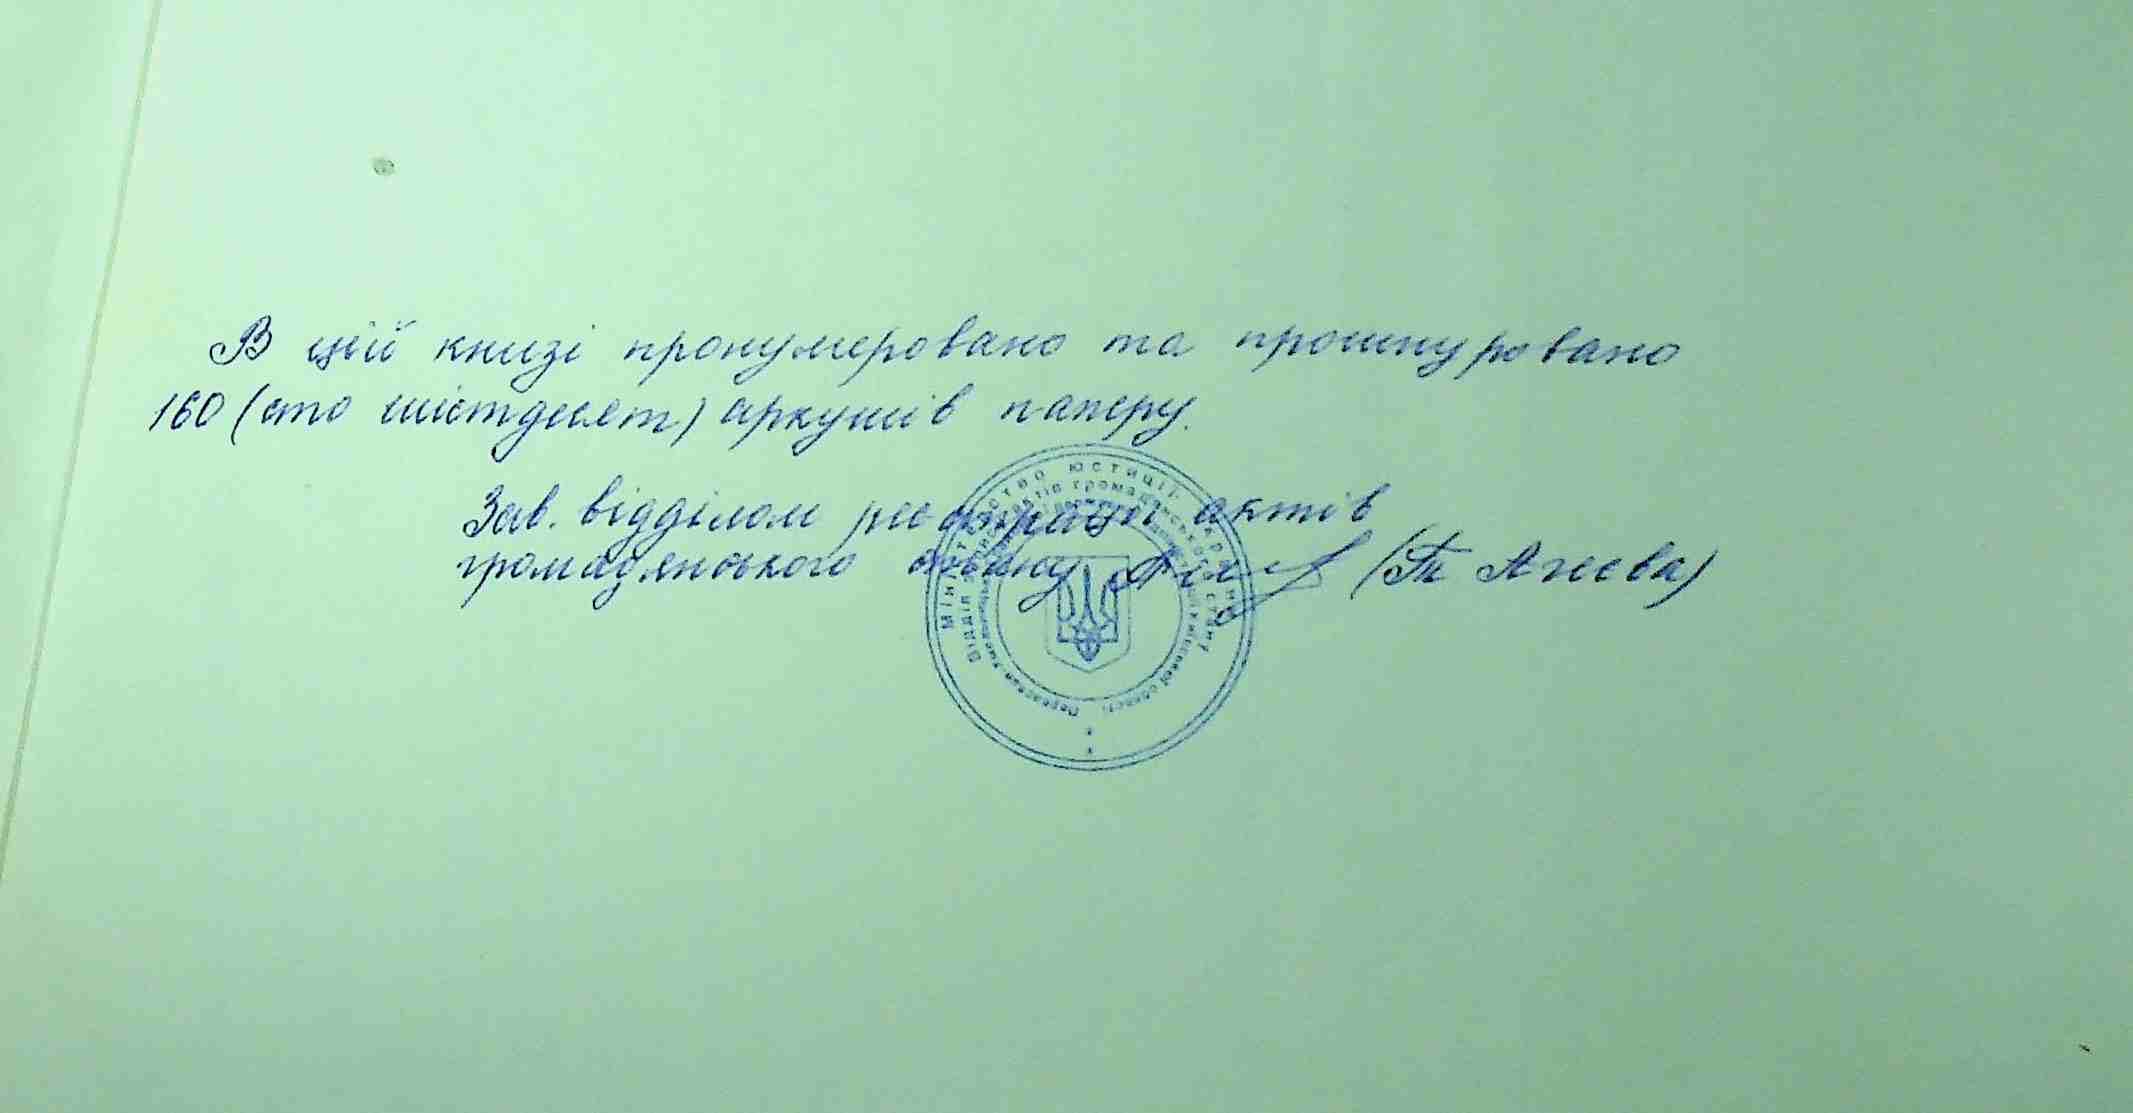 В цій книзі пронумеровано та прошнуровано
160 (сто шістдесят) аркушів паперу.
Зав. відділом реєстрації актів
громадянського стану (Т. Агєєва)
Міністерство юстиції України
Відділ актів громадянського стану
Київської області